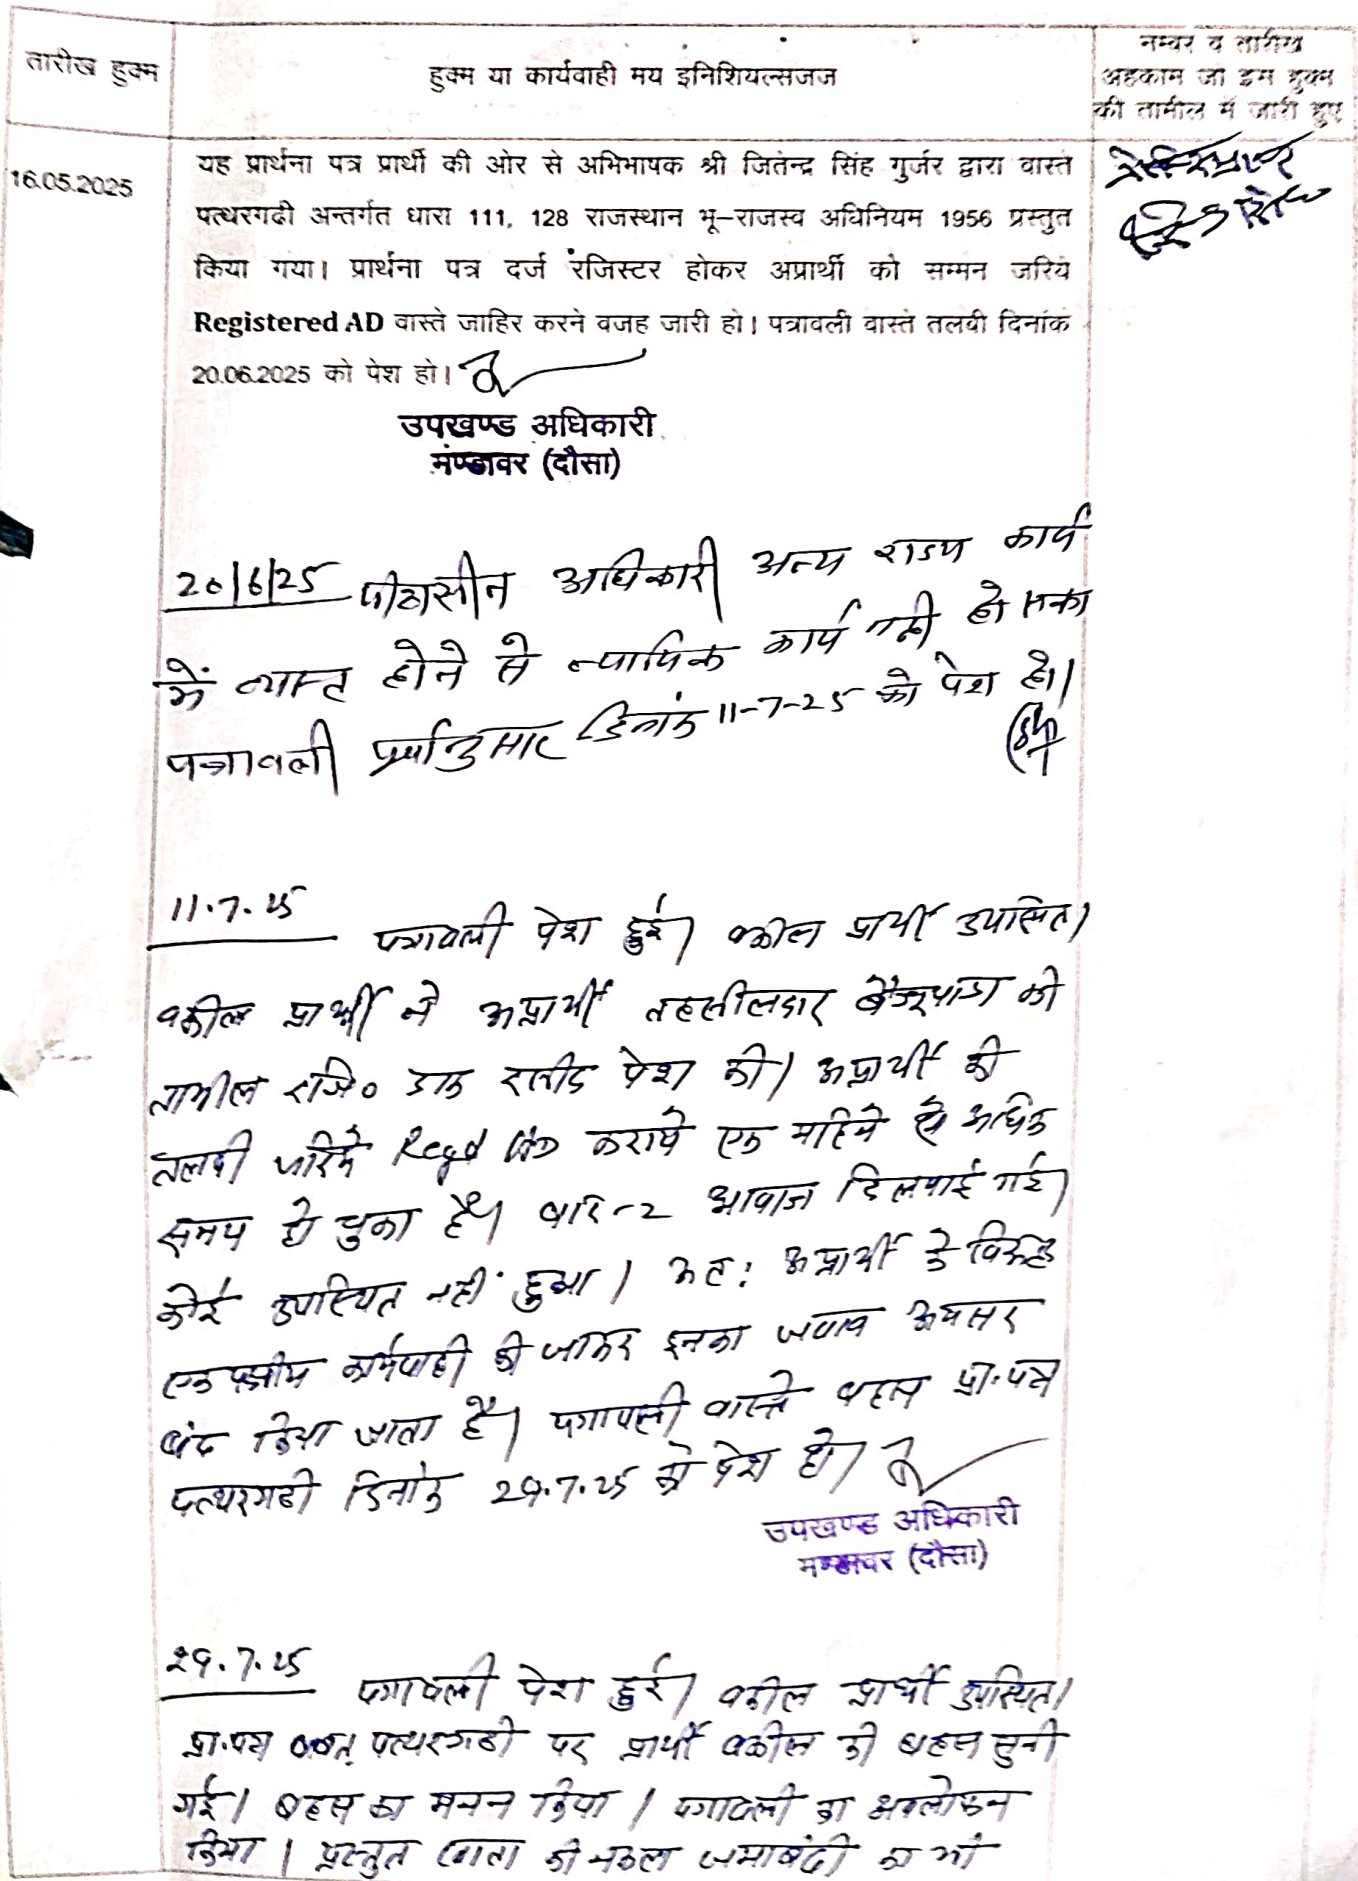 तारीख हुक्म
हुक्म या कार्यवाही मय इनिशियल्सजज
नम्वर व तारीख
अहकाम जो इस हुक्म
की तामील में जारी हुए
16.05.2025
यह प्रार्थना पत्र प्रार्थी की ओर से अभिभाषक श्री जितेन्द्र सिंह गुर्जर द्वारा वास्ते
पत्थरगढी अन्तर्गत धारा 111, 128 राजस्थान भू–राजस्व अधिनियम 1956 प्रस्तुत
किया गया। प्रार्थना पत्र दर्ज रजिस्टर होकर अप्रार्थी को सम्मन जरिये
Registered AD वास्ते जाहिर करने वजह जारी हो। पत्रावली वास्ते तलवी दिनांक
20.06.2025 को पेश हो।
उपखण्ड अधिकारी
मण्डावर (दौसा)
20/6/25 पीठासीन अधिकारी अन्य राज्य कार्य
में व्यस्त होने से न्यायिक कार्य नही हो सका
पत्रावली पूर्वानुसार दिनांक 11-7-25 को पेश हो।
11.7.25
पत्रावली पेश हुई। वकील प्रार्थी उपस्थित।
वकील प्रार्थी ने अप्रार्थी तहसीलदार बैजूपाडा की
तामील रजि० डाक रसीद पेश की। अप्रार्थी की
तलवी जरिये Regd कराये एक महिने से अधिक
समय हो चुका है। बार-2 आवाज दिलवाई गई।
कोई उपस्थित नहीं हुआ। अतः अप्रार्थी के विरूद्ध
एक पक्षीय कार्यवाही की जाकर इनका जवाब अवसर
बंद किया जाता है। पत्रावली वास्ते बहस प्रा.पत्र
पत्थरगढी दिनांक 29.7.25 को पेश हो।
उपखण्ड अधिकारी
मण्डावर (दौसा)
29.7.25
पत्रावली पेश हुई। वकील प्रार्थी उपस्थित।
प्रा.पत्र पत्थरगढी पर प्रार्थी वकील की बहस सुनी
गई। बहस का मनन किया। पत्रावली का अवलोकन
किया। प्रस्तुत खाता की नकल जमाबंदी का भी